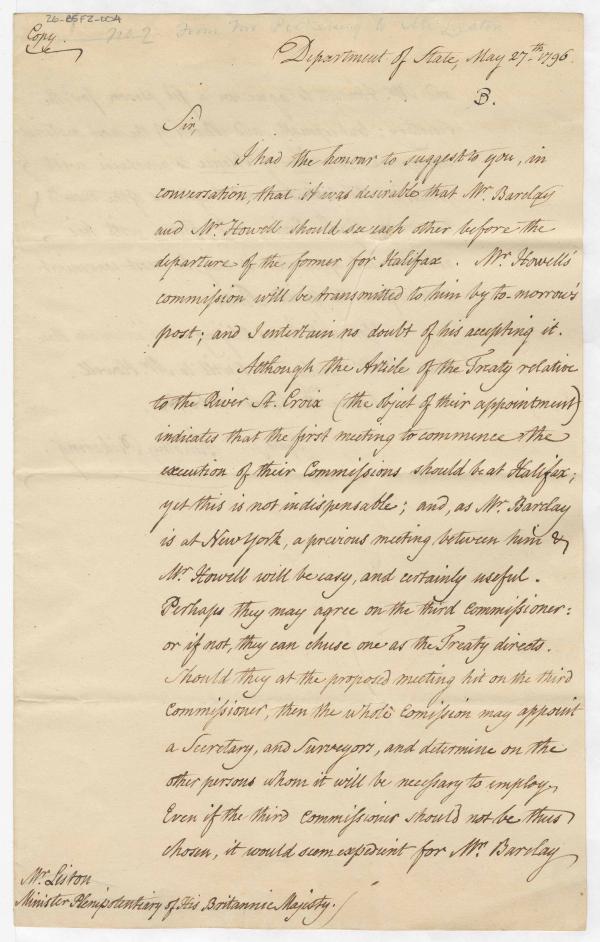 26-BSF2-004
Copy.
No. 2 From Mr Pickering to Mr Liston
Department of State, May 27th. 1796.
B.
Sir,
I had the honour to suggest to you, in
conversation, that it was desirable that Mr. Barclay
and Mr. Howell should see each other before the
departure of the former for Halifax. Mr. Howell's
commission will be transmitted to him by to-morrow's
post; and I entertain no doubt of his accepting it.
Although the Article of the Treaty relative
to the River St. Croix (the object of their appointment)
indicates that the first meeting to commence the
execution of their Commissions should be at Halifax;
yet this is not indispensable; and, as Mr. Barclay
is at New York, a previous meeting between him &
Mr. Howell will be easy, and certainly useful.
Perhaps they may agree on the third Commissioner:
or if not, they can chuse one as the Treaty directs.
Should they at the proposed meeting hit on the third
Commissioner, then the whole Comission may appoint
a Secretary, and Surveyors, and determine on the
other persons whom it will be necessary to employ.
Even if the third Commissioner should not be thus
chosen, it would seem expedient for Mr. Barclay
Mr. Liston
Minister Plenipotentiary of His Britannic Majesty.